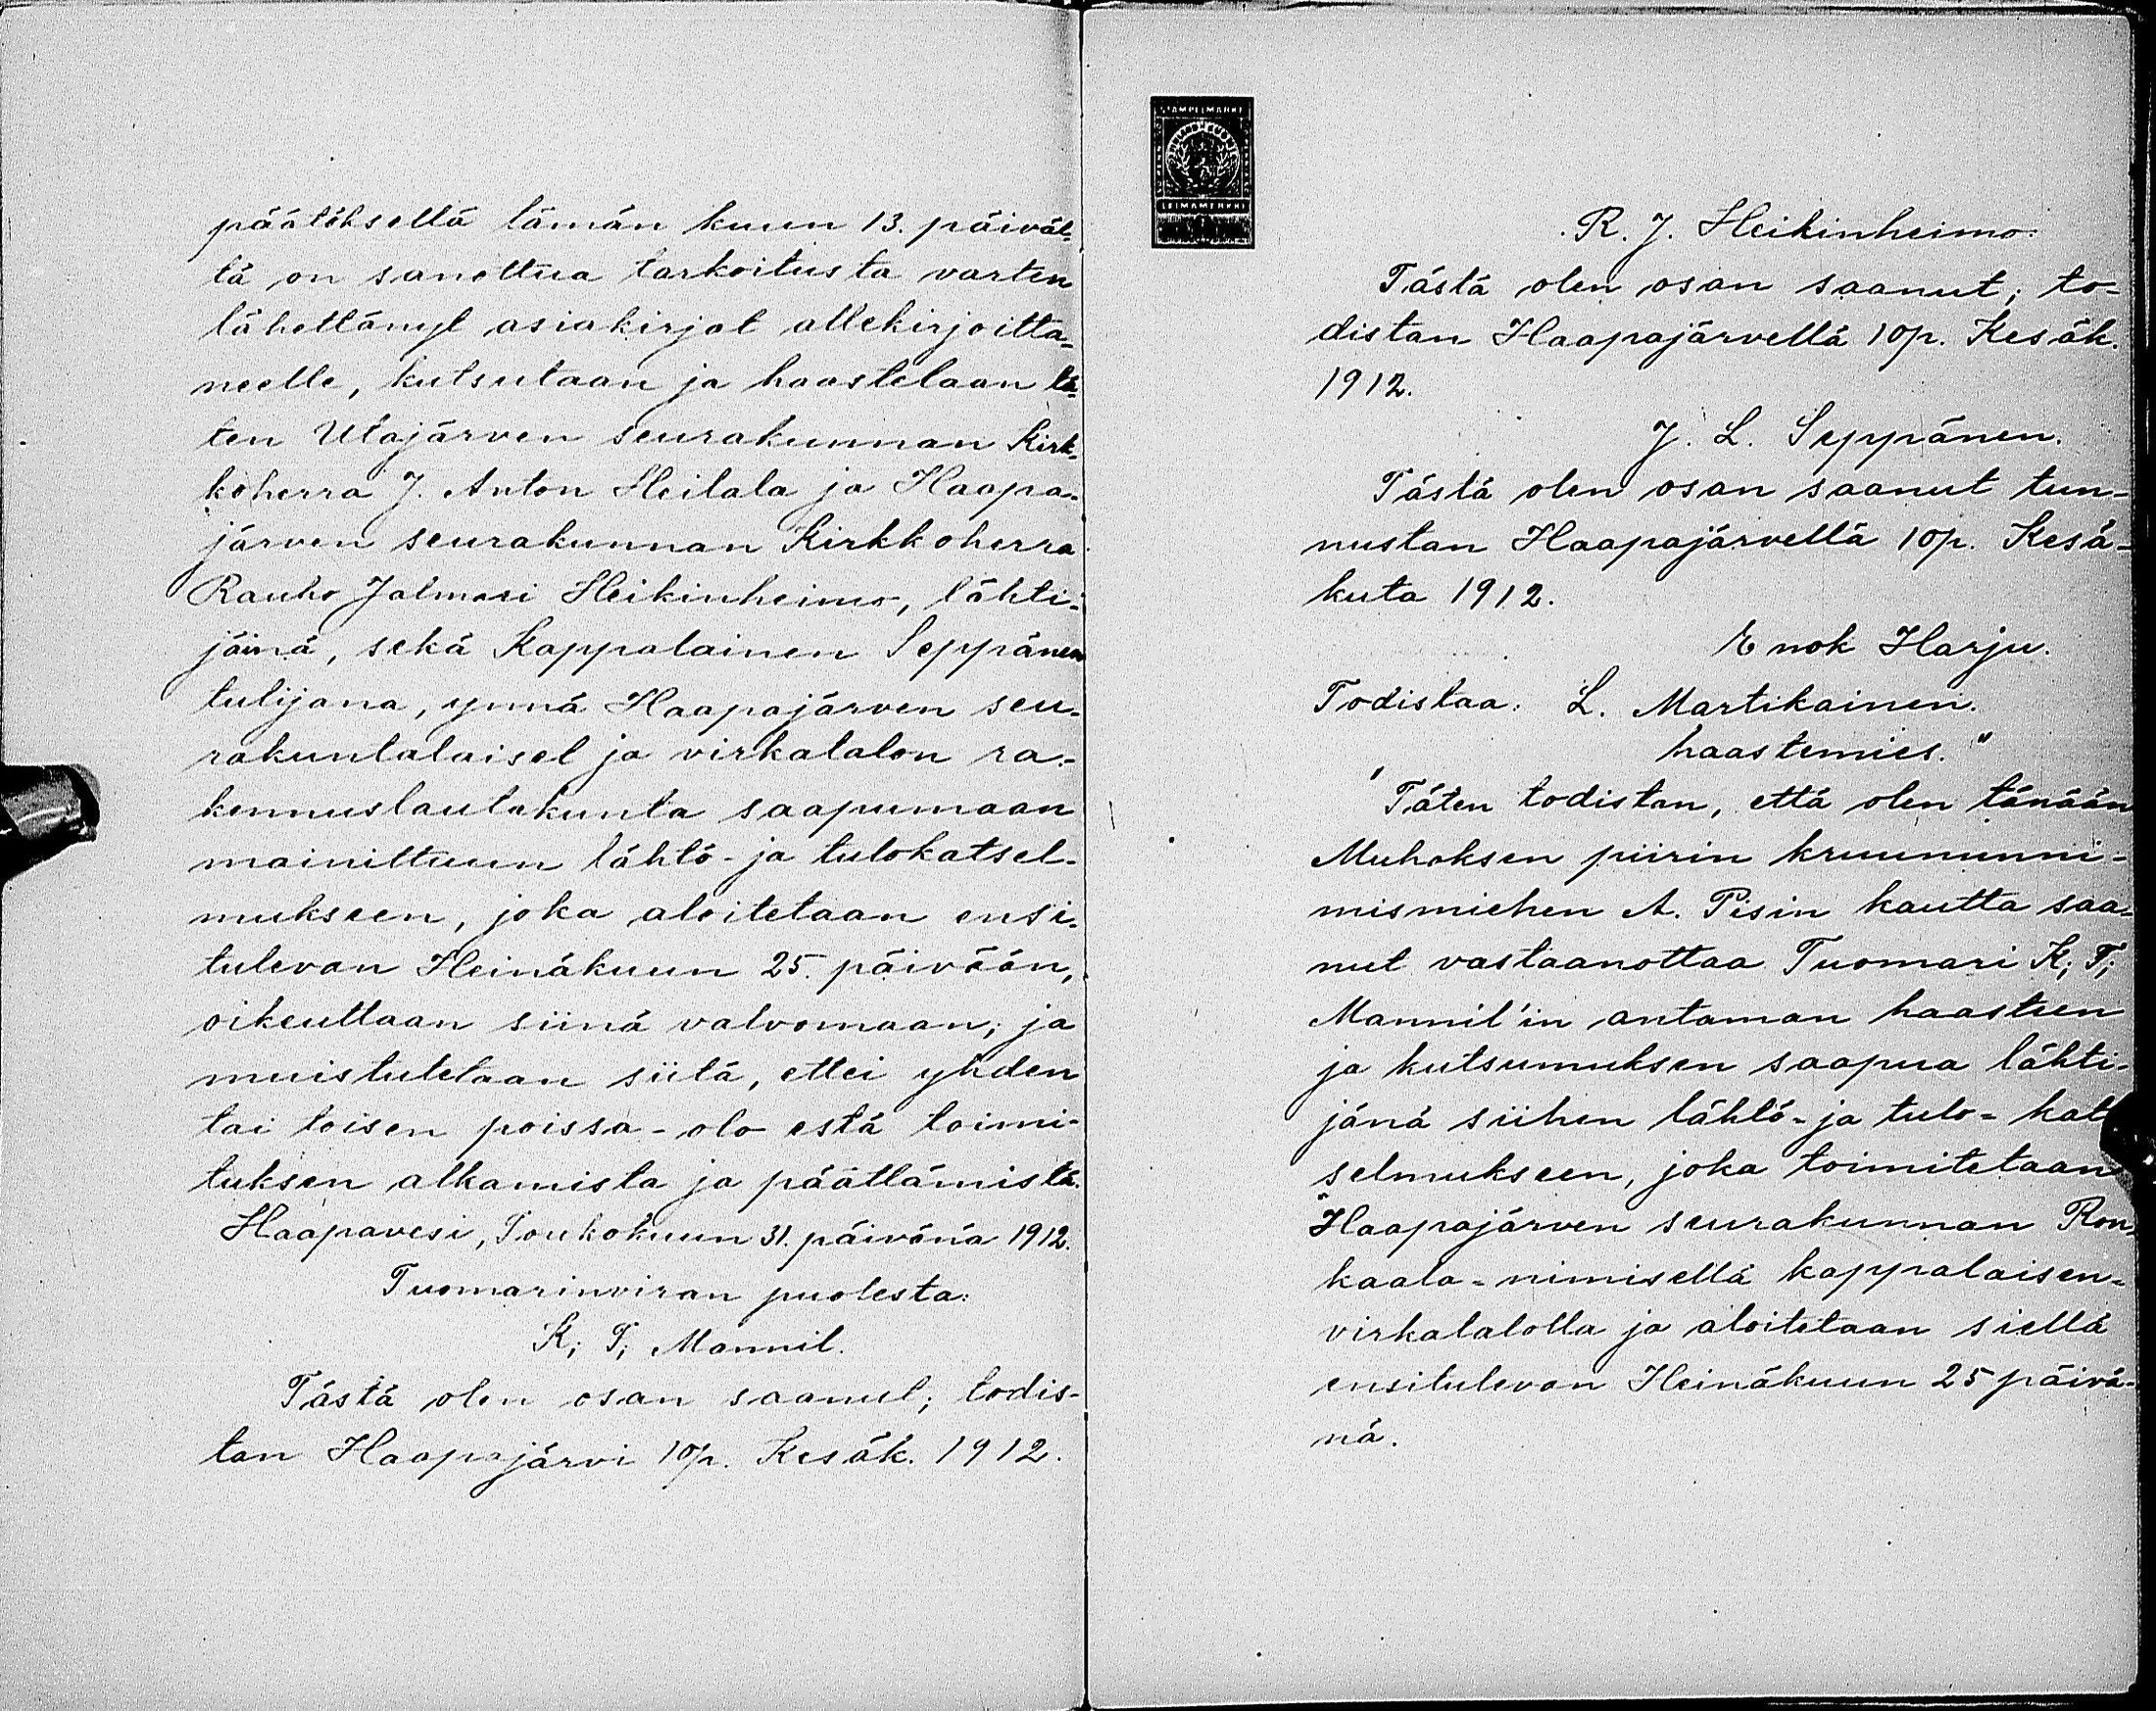 päätöksellä tämän kuun 13. päiväl-
tä on sanottua tarkoitusta varten
lähettänyt asiakirjat allekirjoitta-
neelle, kutsutaan ja haastetaan tä-
ten Utajärven seurakunnan Kirk-
koherra J. Anton Heilala ja Haapa-
järven seurakunnan Kirkkoherra
Rauho Jalmari Heikinheimo, lähti-
jäinä, sekä Kappalainen Seppänen
tulijana, ynnä Haapajärven seu-
rakuntalaiset ja virkatalon ra-
kennuslautakunta saapumaan
mainittuun lähtö- ja tulokatsel-
mukseen, joka aloitetaan ensi-
tulevan Heinäkuun 25. päivään,
oikeuttaan siinä valvomaan; ja
muistutetaan siitä, ettei yhden
tai toisen poissa-olo estä toimi-
tuksen alkamista ja päättämistä.
Haapavesi, Toukokuun 31. päivänä 1912.
Tuomarinviran puolesta:
K; T; Mannil.
Tästä olen osan saanut; todis-
tan Haapajärvi 10p. Kesäk. 1912.
STÄMPELMÄRKE
LEIMAMERKKI
R. J. Heikinheimo.
Tästä olen osan saanut; to-
distan Haapajärvellä 10p. Kesäk.
1912.
J. L. Seppänen.
Tästä olen osan saanut tun-
nustan Haapajärvellä 10p. Kesä-
kuta 1912.
Enok Harju.
Todistaa: L. Martikainen.
haastemies."
"Täten todistan, että olen tänään
Muhoksen piirin kruununni-
mismiehen A. Pisin kautta saa-
nut vastaanottaa Tuomari K; T;
Mannil'in antaman haasteen
ja kutsumuksen saapua lähti-
jänä siihen lähtö- ja tulo- kat
selmukseen, joka toimitetaan
Haapajärven seurakunnan Ron-
kaala-nimisellä kappalaisen-
virkatalolla ja aloitetaan siellä
ensitulevan Heinäkuun 25 päivä-
nä.